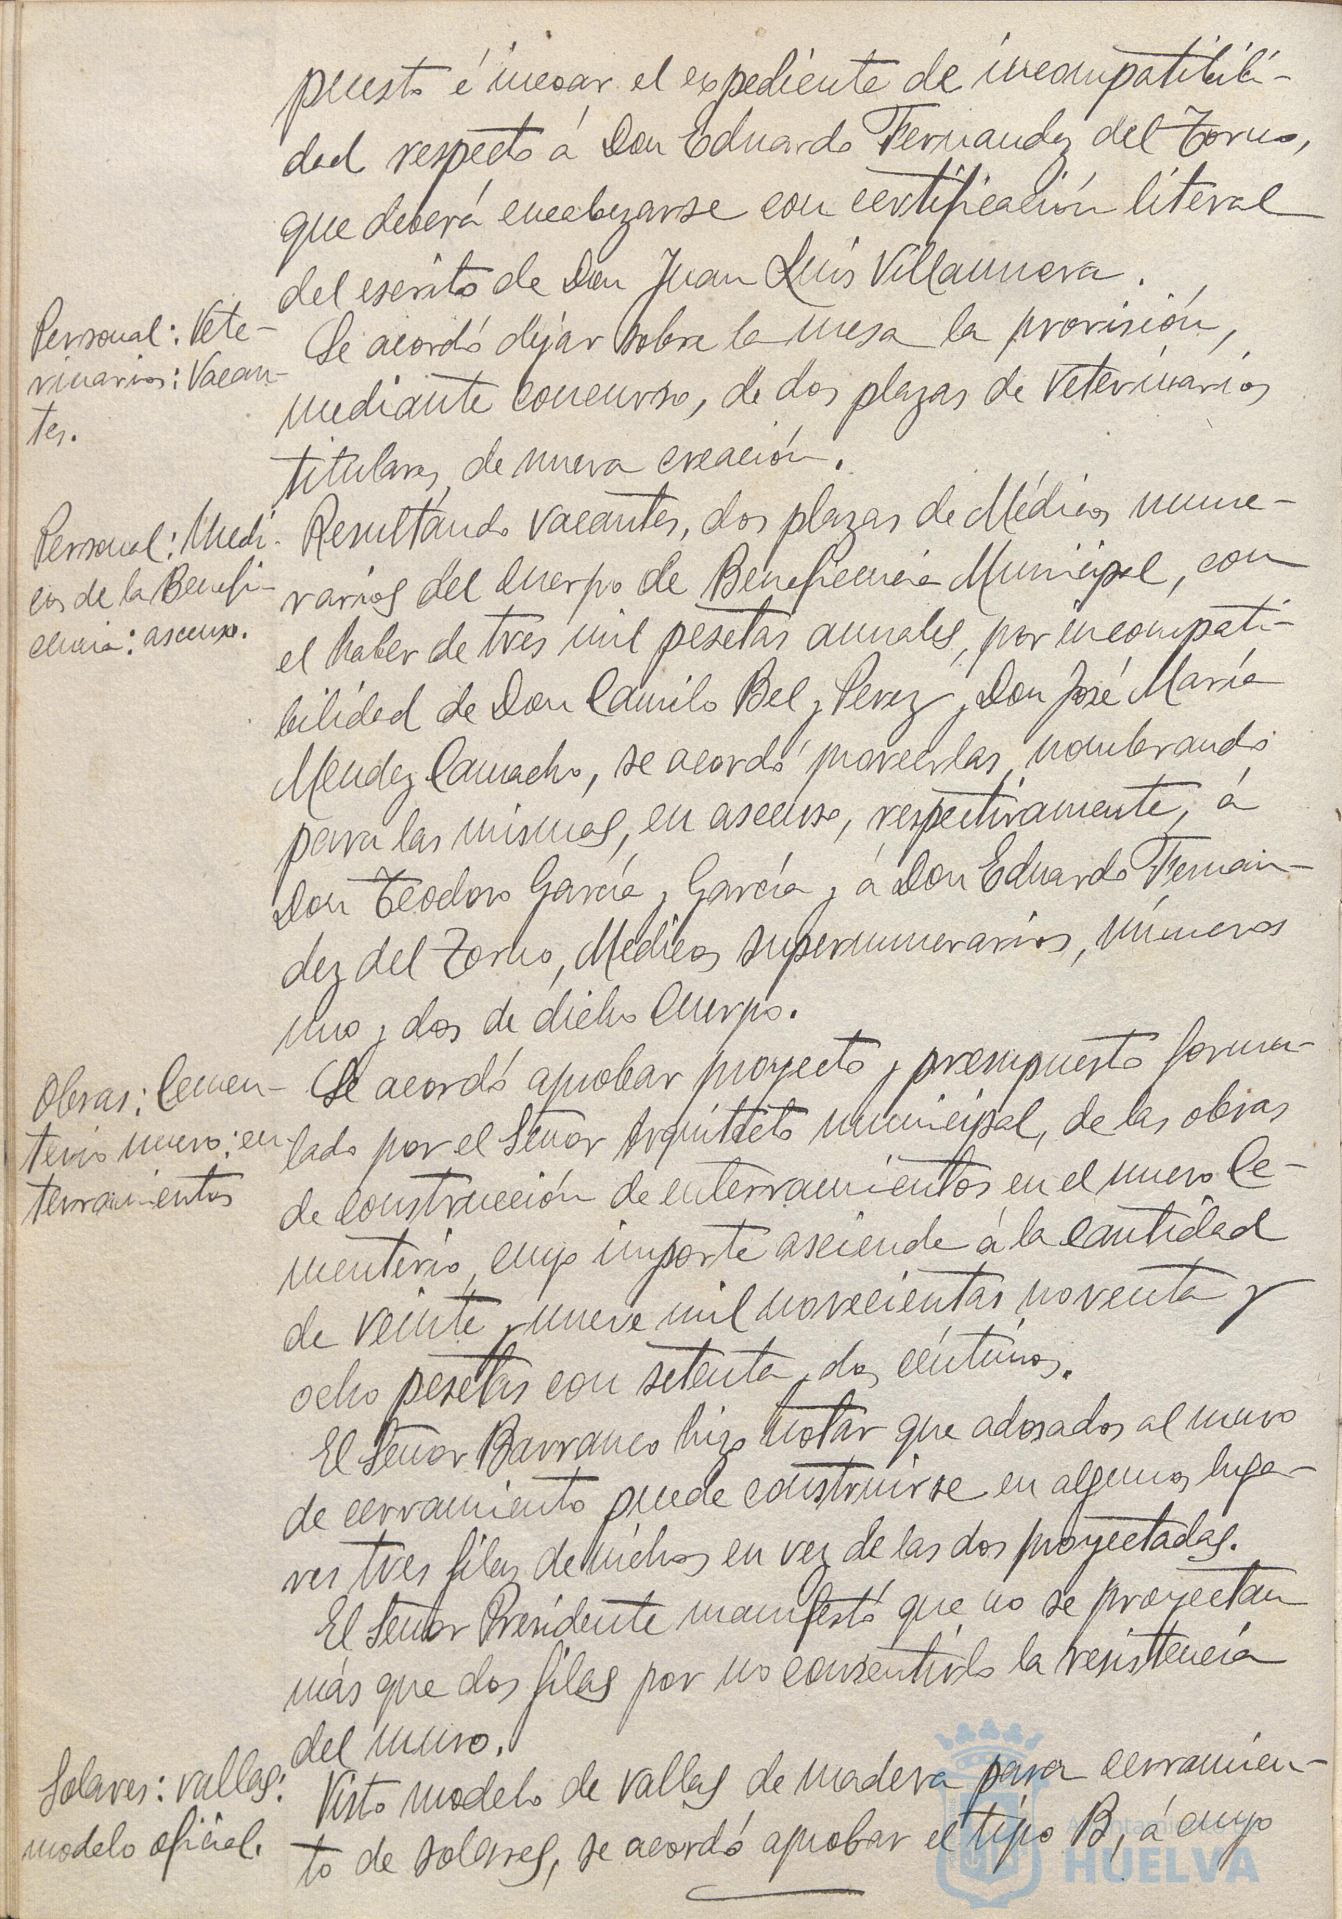 puesto é incoar el expediente de incompatibili-
dad respecto á Don Eduardo Fernandez del Torno,
que deberá encabezarse con certificación literal
del escrito de Don Juan Luis Villanueva.
Personal: Vete-
rinarios: Vacan-
tes.
Se acordó dejar sobre la mesa la provisión,
mediante concurso, de dos plazas de Veterinarios
titulares, de nueva creación.
Personal: Médi-
cos de la Benefi-
cencia: ascenso.
Resultando vacantes, dos plazas de Médicos nume-
rarios del Cuerpo de Beneficencia Municipal, con
el haber de tres mil pesetas anuales, por incompati-
bilidad de Don Camilo Bel y Perez y Don José María
Mendez Camacho, se acordó proveerlas, nombrando
para las mismas, en ascenso, respectivamente, á
Don Teodoro García y García y á Don Eduardo Fernan-
dez del Torno, Médicos supernumerarios, números
uno y dos de dicho Cuerpo.
Obras: Cemen-
terio nuevo: en
terramientos
Se acordó aprobar proyecto y presupuesto formu-
lado por el Señor Arquitecto municipal, de las obras
de construcción de enterramientos en el nuevo Ce-
menterio, cuyo importe asciende á la cantidad
de veinte y nueve mil novecientas noventa y
ocho pesetas con setenta y dos céntimos.
El Señor Barranco hizo notar que adosados al muro
de cerramiento puede construirse en algunos luga-
res tres filas de nichos en vez de las dos proyectadas.
El Señor Presidente manifestó que no se proyectan
más que dos filas por no consentirlo la resistencia
del muro.
Solares: vallas:
modelo oficial.
Visto modelo de vallas de madera para cerramien-
to de solares, se acordó aprobar el tipo B, á cuyo
Ayuntamiento de
HUELVA